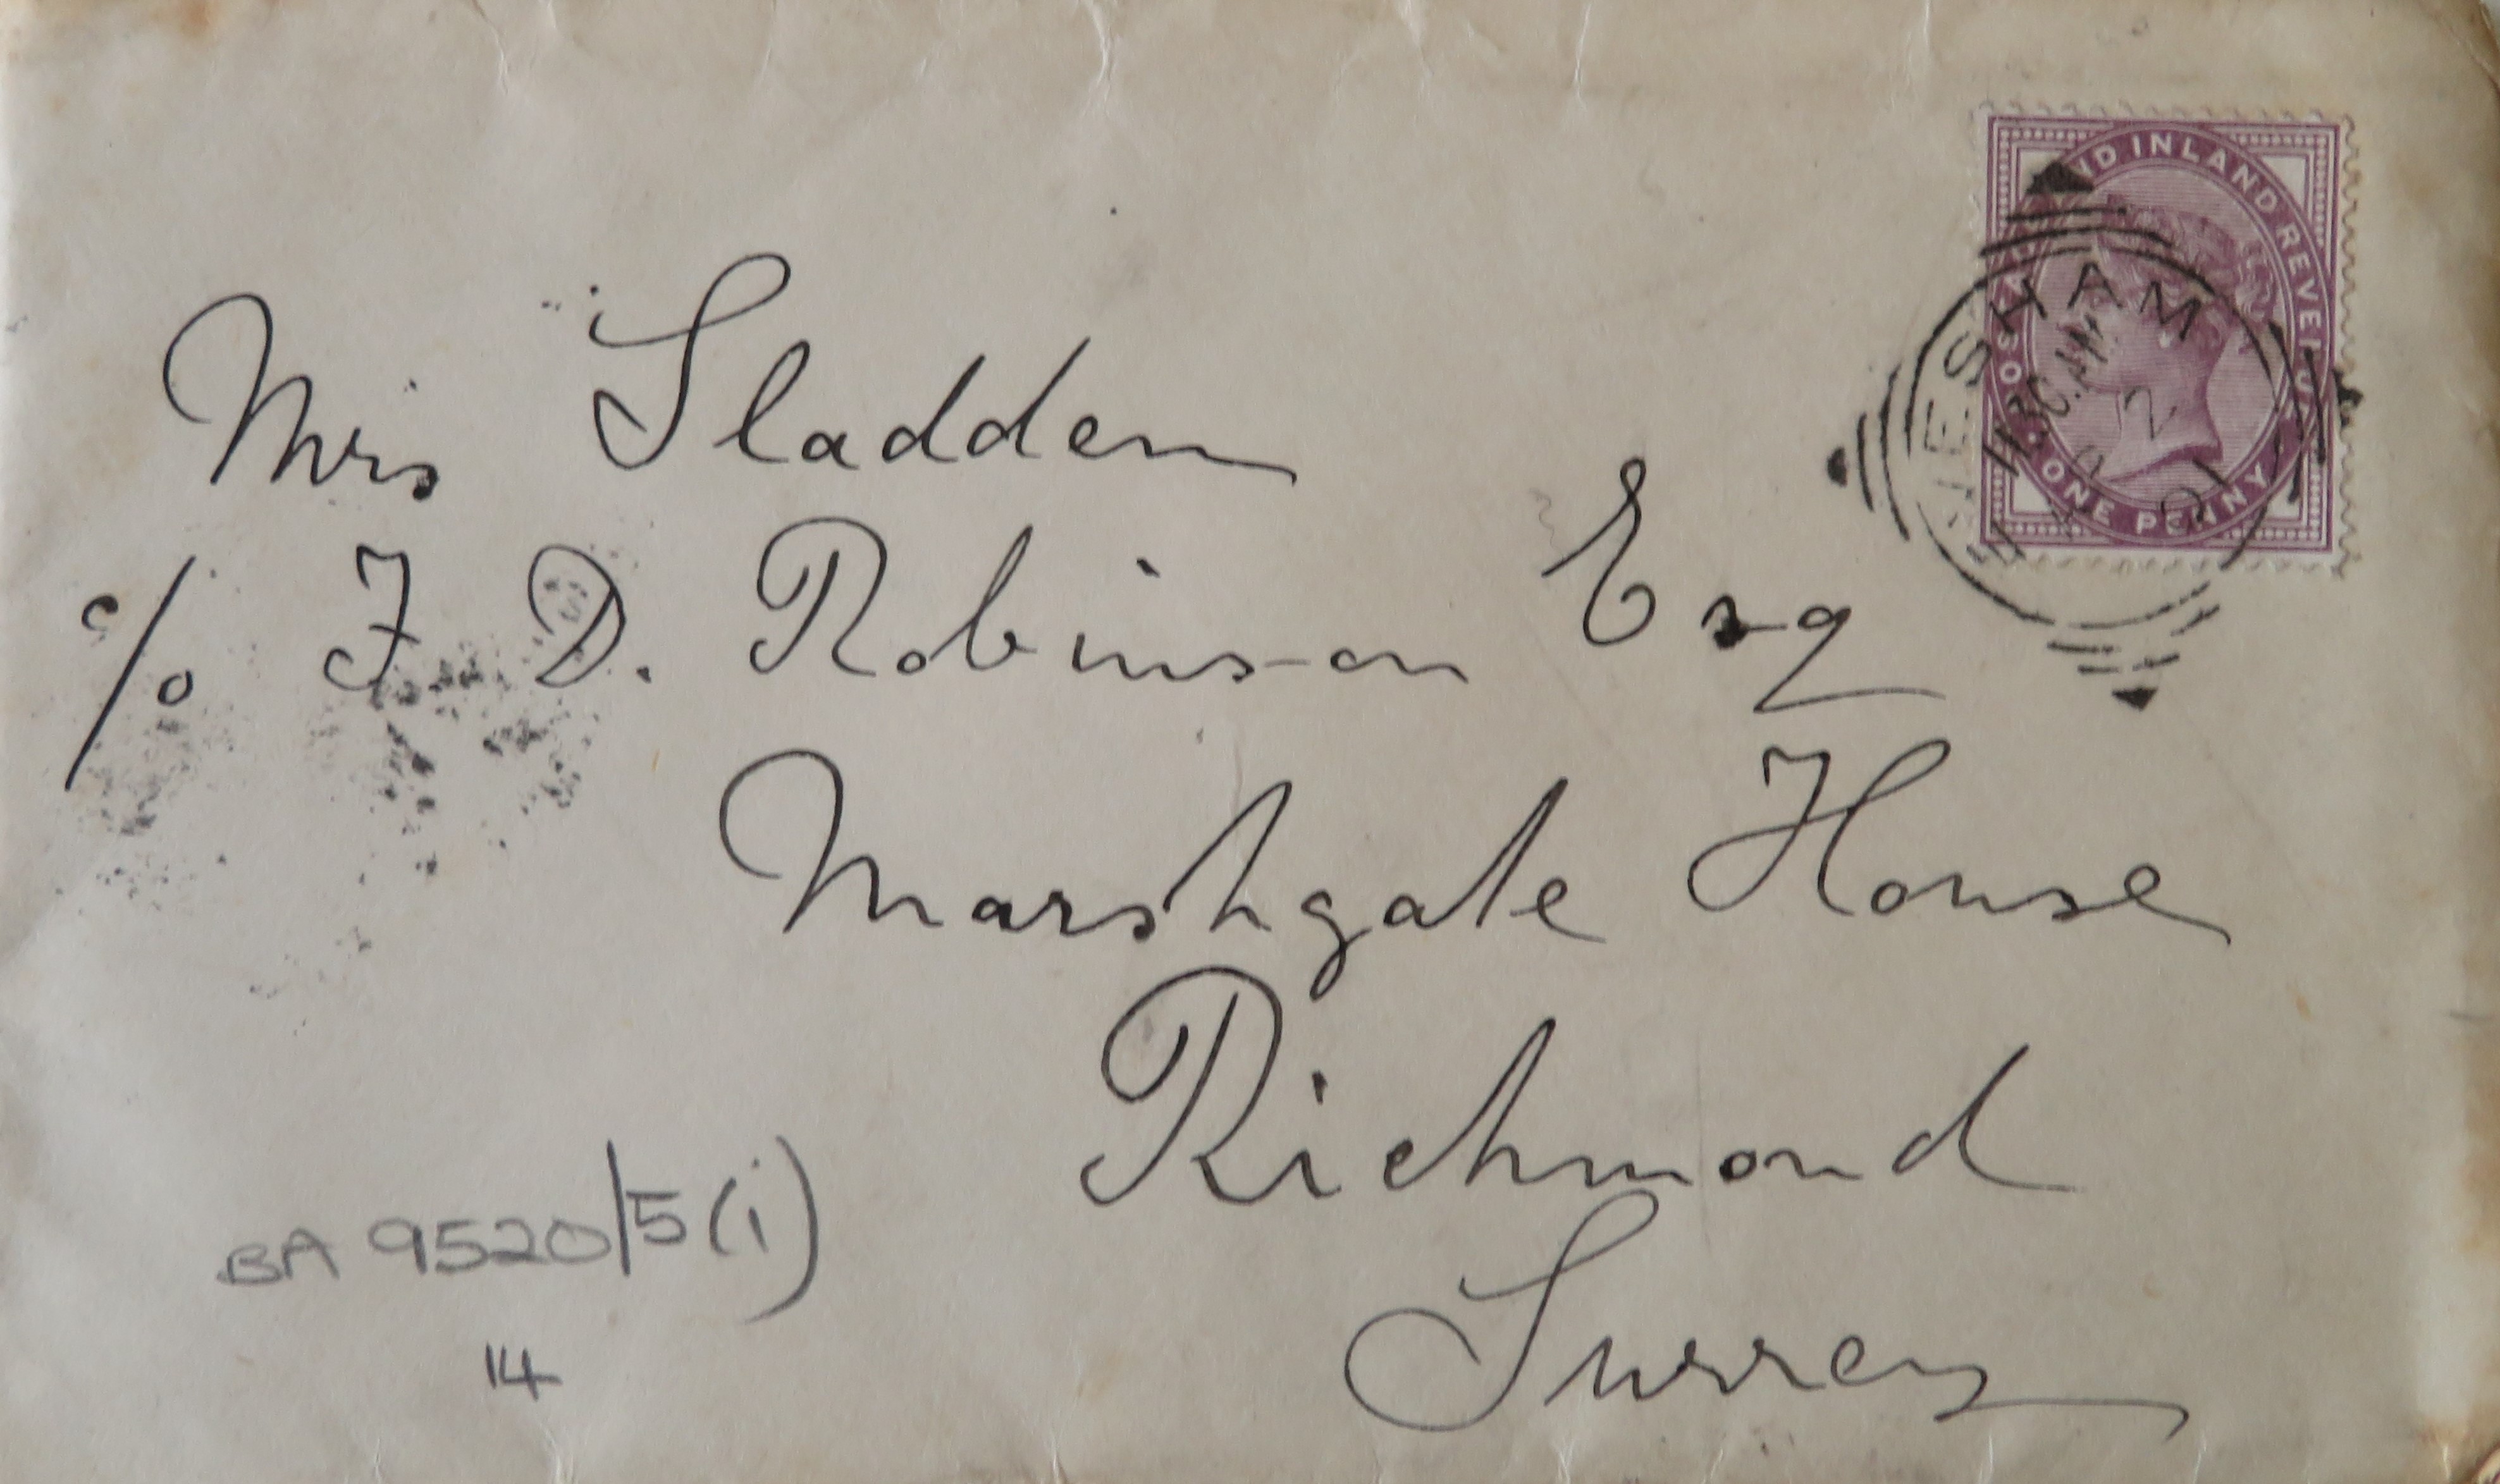 AND INLAND REVENUE
ONE PENNY
ESHAM
Mrs Sladden
c/o F. D. Robinson Esq
Marshgate House
Richmond
Surrey
BA 9520/5(i)
14